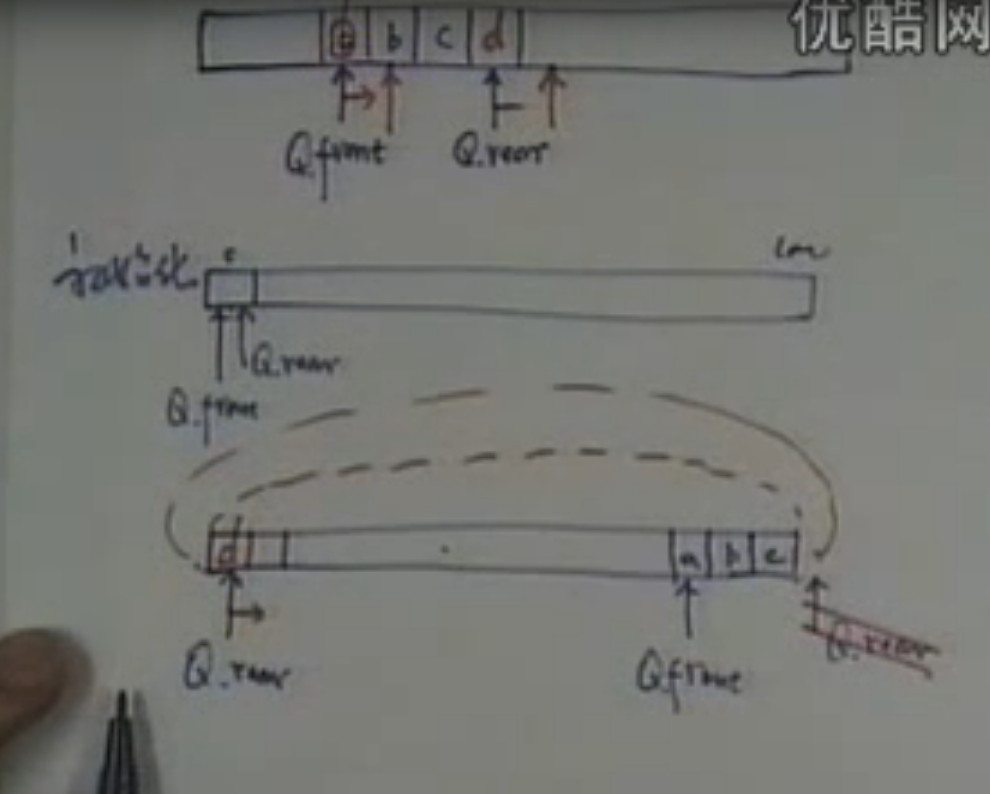 优酷网
a b c d
Q.front Q.rear
初始状
Q.rear
Q.front
d a b c
Q.rear Q.front Q.rear